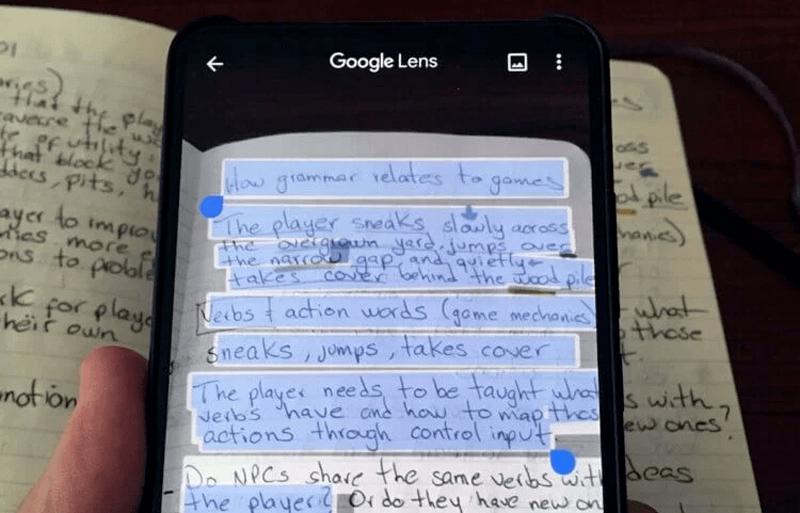 Google Lens
How grammar relates to games
The player sneaks slowly across
the overgrown yard, jumps over
the narrow gap and quietly
takes cover behind the wood pile
Verbs & action words (game mechanics)
sneaks, jumps, takes cover
The player needs to be taught what
verbs have and how to map thos
actions through control input
Do NPCs share the same verbs with
the player? Or do they have new on
that the play
averse the
of utility
that block yo
dders, pits, h
ayer to improv
more
ons to proble
for playe
their own
notion
oss
ver
od pile
hanics)
what
those
s with
ew ones?
deas